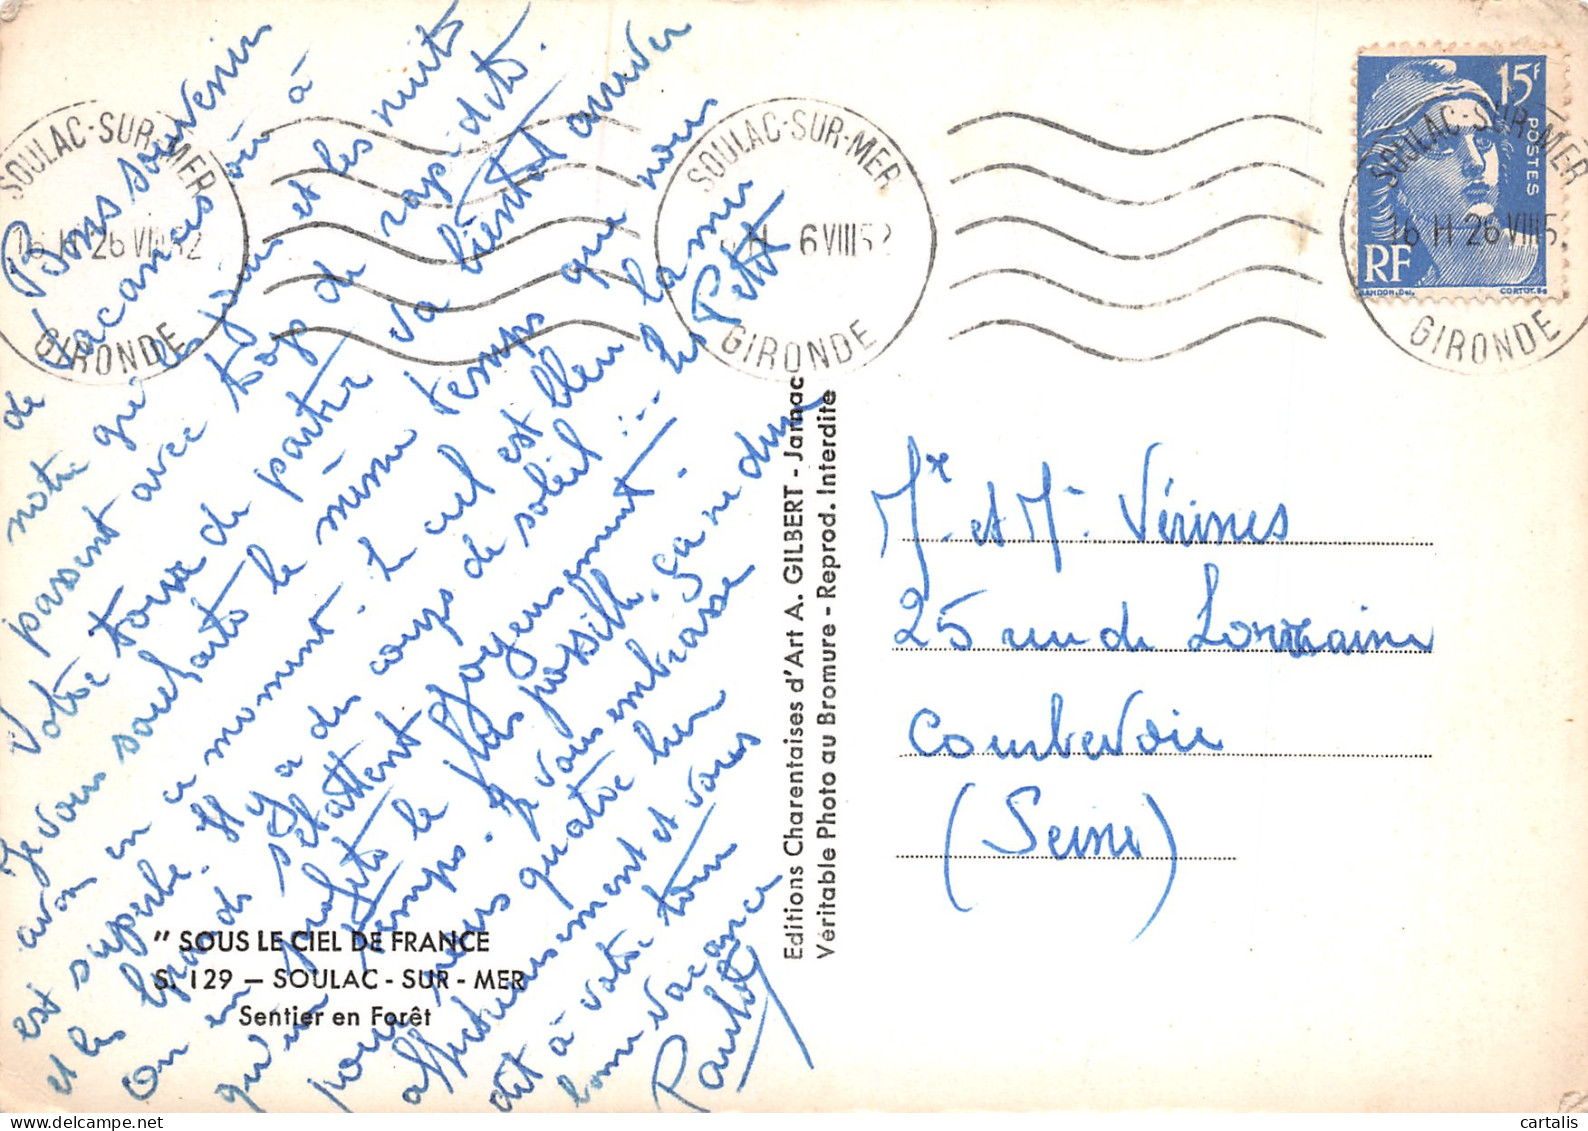 Bons souvenirs
de vacances où à
notre gré les jours et les nuits
passent avec trop de rapidité.
Votre tour de partir va bientôt arriver
Je vous souhaite le même temps que nous
avons en ce moment. Le ciel est bleu la mer
est superbe. Il y a des coups de soleil... Les Petits
et les grands s'ébattent joyeusement.
On en profite le plus possible. ça ne dure
qu'un temps. Je vous embrasse
pour nous quatre bien
affectueusement et vous
dit à votre tour
bonne vacance
Paulo
SOULAC-SUR-MER
16 H 26 VIII 52
GIRONDE
SOULAC-SUR-MER
6 VIII 52
GIRONDE
SOULAC-SUR-MER
16 H 26 VIII 5
GIRONDE
15F
POSTES
RF
GANDON.Del.
CORTOT.Sc
Editions Charentaises d'Art A. GILBERT - Jarnac
Véritable Photo au Bromure - Reprod. Interdite
Mr. et Me Vérines
25 rue de Lorraine
Courbevoie
(Seine)
" SOUS LE CIEL DE FRANCE
S. 129 — SOULAC - SUR - MER
Sentier en Forêt
cartalis
www.delcampe.net